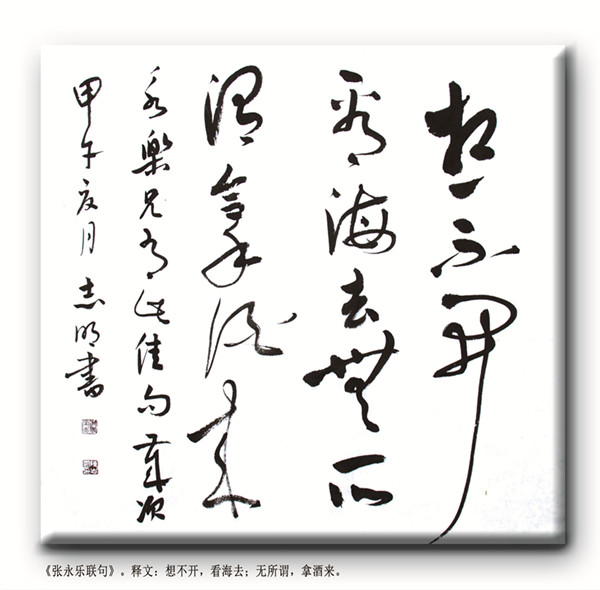 想不开
看海去無所
谓拿酒来
永樂兄有此佳句歲次
甲午夏月志明書
《张永乐联句》。释文：想不开，看海去；无所谓，拿酒来。